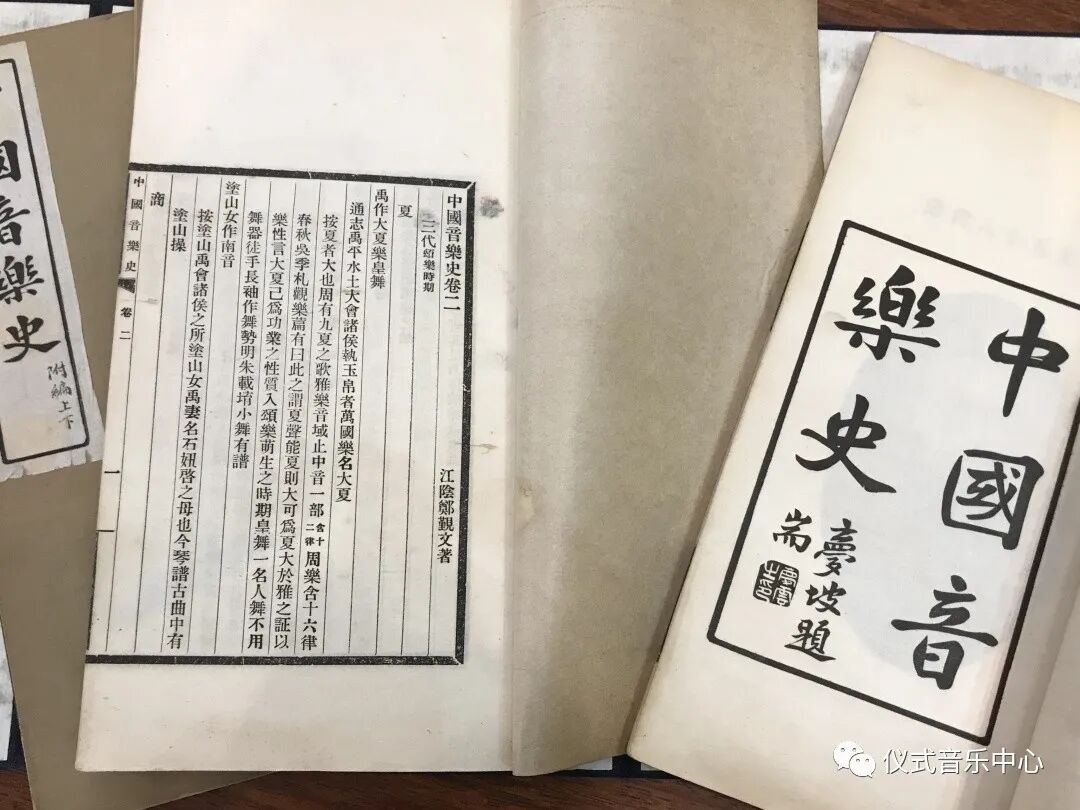 國音樂史
附編上下
中國音樂史卷二
江陰鄭覲文著
三代頌樂時期
夏
禹作大夏樂皇舞
通志禹平水土大會諸侯執玉帛者萬國樂名大夏
按夏者大也周有九夏之歌雅樂音域止中音一部含十二律周樂含十六律
春秋吳季札觀樂篇有曰此之謂夏聲能夏則大可爲夏大於雅之証以
樂性言大夏己爲功業之性質入頌樂萌生之時期皇舞一名人舞不用
舞器徒手長袖作舞勢明朱載堉小舞有譜
塗山女作南音
按塗山禹會諸侯之所塗山女禹妻名石妞啓之母也今琴譜古曲中有
塗山操
商
中國音樂史
卷二
一
中國音
樂史
夢坡題
耑
仪式音乐中心